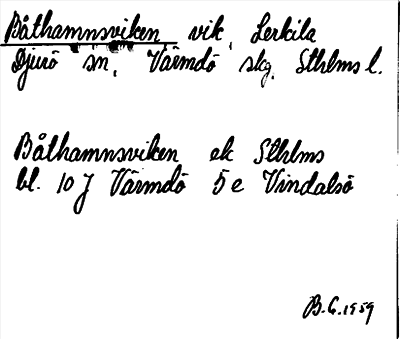 Båthamnsviken vik, Lerkila
Djurö sn, Värmdö skg, Sthlms l.
Båthamnsviken ek Sthlms
bl. 10 J Värmdö 5 e Vindalsö
B.G. 1959